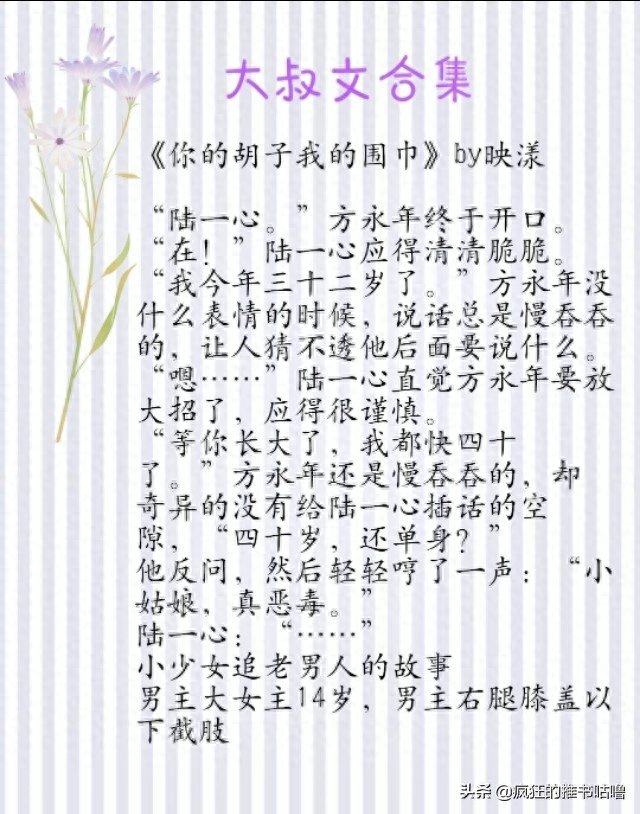 大叔文合集
《你的胡子我的围巾》by映漾
“陆一心。”方永年终于开口。
“在！”陆一心应得清清脆脆。
“我今年三十二岁了。”方永年没
什么表情的时候，说话总是慢吞吞
的，让人猜不透他后面要说什么。
“嗯……”陆一心直觉方永年要放
大招了，应得很谨慎。
“等你长大了，我都快四十
了。”方永年还是慢吞吞的，却
奇异的没有给陆一心插话的空
隙，“四十岁，还单身？”
他反问，然后轻轻哼了一声：“小
姑娘，真恶毒。”
陆一心：“……”
小少女追老男人的故事
男主大女主14岁，男主右腿膝盖以
下截肢
头条 @疯狂的推书咕噜